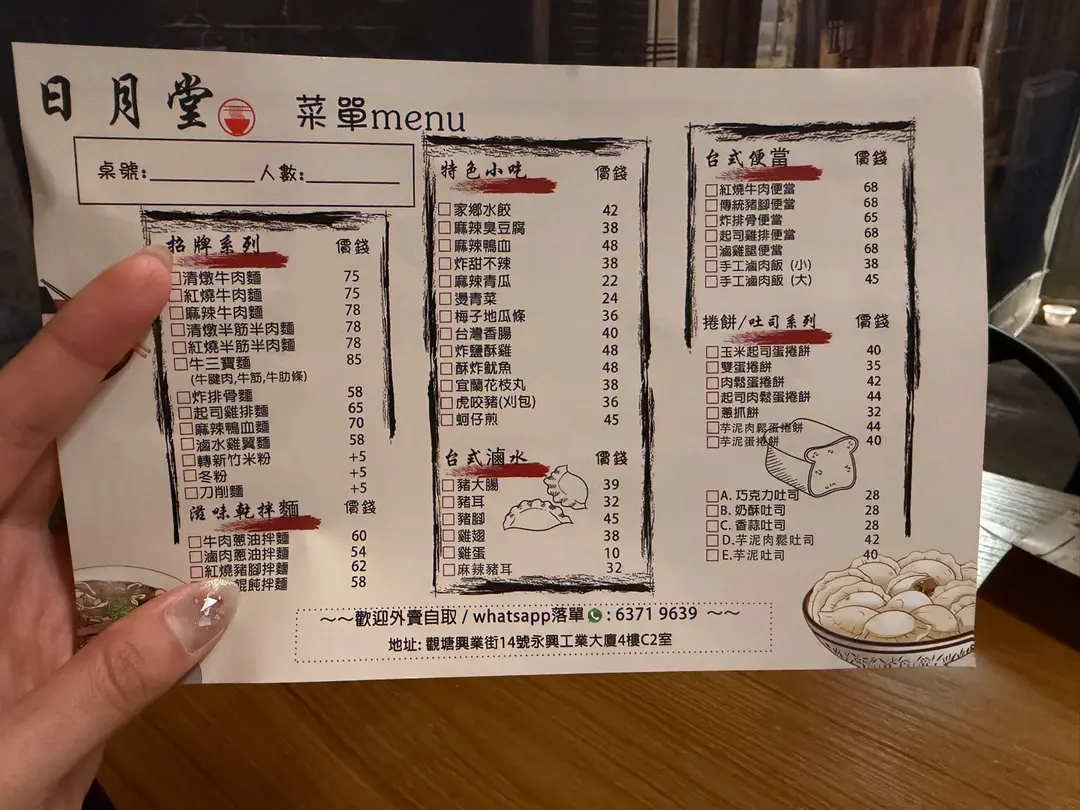 日月堂
菜單menu
桌號:__________人數:__________
招牌系列 價錢
清燉牛肉麵 75
紅燒牛肉麵 75
麻辣牛肉麵 78
清燉半筋半肉麵 78
紅燒半筋半肉麵 78
牛三寶麵 85
(牛腱肉,牛筋,牛肋條)
炸排骨麵 58
起司雞排麵 65
麻辣鴨血麵 70
滷水雞翼麵 58
轉新竹米粉 +5
冬粉 +5
刀削麵 +5
滋味乾拌麵 價錢
牛肉蔥油拌麵 60
滷肉蔥油拌麵 54
紅燒豬腳拌麵 62
餛飩拌麵 58
特色小吃 價錢
家鄉水餃 42
麻辣臭豆腐 38
麻辣鴨血 48
炸甜不辣 38
麻辣青瓜 22
燙青菜 24
梅子地瓜條 36
台灣香腸 40
炸鹽酥雞 48
酥炸魷魚 48
宜蘭花枝丸 38
虎咬豬(刈包) 36
蚵仔煎 45
台式滷水 價錢
豬大腸 39
豬耳 32
豬腳 45
雞翅 38
雞蛋 10
麻辣豬耳 32
台式便當 價錢
紅燒牛肉便當 68
傳統豬腳便當 68
炸排骨便當 65
起司雞排便當 68
滷雞腿便當 68
手工滷肉飯 (小) 38
手工滷肉飯 (大) 45
捲餅/吐司系列 價錢
玉米起司蛋捲餅 40
雙蛋捲餅 35
肉鬆蛋捲餅 42
起司肉鬆蛋捲餅 44
蔥抓餅 32
芋泥肉鬆蛋捲餅 44
芋泥蛋捲餅 40
A. 巧克力吐司 28
B. 奶酥吐司 28
C. 香蒜吐司 28
D.芋泥肉鬆吐司 42
E.芋泥吐司 40
～～歡迎外賣自取 / whatsapp落單 : 6371 9639 ～～
地址: 觀塘興業街14號永興工業大廈4樓C2室